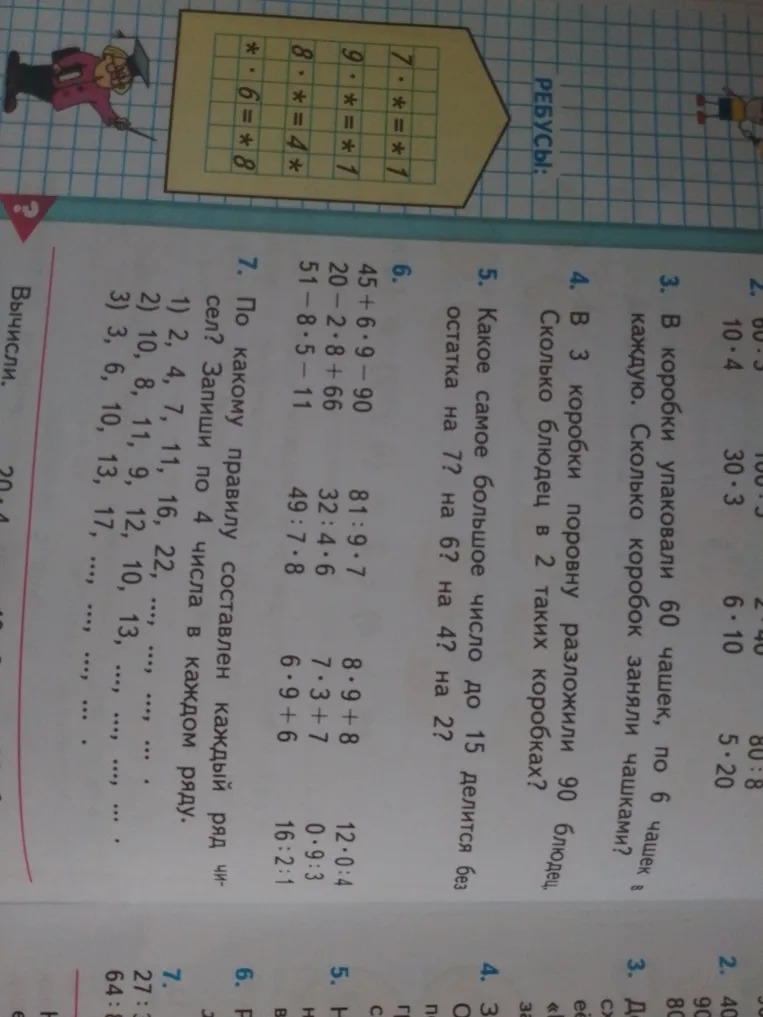 2. 60 : 3
10 · 4 30 · 3 6 · 10 5 · 20
3. В коробки упаковали 60 чашек, по 6 чашек в
каждую. Сколько коробок заняли чашками?
4. В 3 коробки поровну разложили 90 блюдец.
Сколько блюдец в 2 таких коробках?
5. Какое самое большое число до 15 делится без
остатка на 7? на 6? на 4? на 2?
6.
45 + 6 · 9 − 90 81 : 9 · 7 8 · 9 + 8 12 · 0 : 4
20 − 2 · 8 + 66 32 : 4 · 6 7 · 3 + 7 0 · 9 : 3
51 − 8 · 5 − 11 49 : 7 · 8 6 · 9 + 6 16 : 2 : 1
7. По какому правилу составлен каждый ряд чи-
сел? Запиши по 4 числа в каждом ряду.
1) 2, 4, 7, 11, 16, 22, ..., ..., ..., ... .
2) 10, 8, 11, 9, 12, 10, 13, ..., ..., ..., ... .
3) 3, 6, 10, 13, 17, ..., ..., ..., ... .
РЕБУСЫ:
7 · * = * 1
9 · * = * 1
8 · * = 4 *
* · 6 = * 8
?
Вычисли.
2. 40
90
3.
80
4.
5.
6.
7.
27 :
64 :